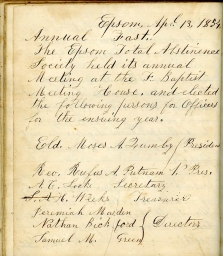 Epsom, Apl. 13, 1854
Annual Fast.
The Epsom Total Abstinence
Society held its annual
Meeting at the F. Baptist
Meeting House, and elected
the following persons for Officers
for the ensuing year.
Eld. Moses A Quimby } President
Rev. Rufus A Putnam V. Pres.
A. C. Locke Secretary
H. Weeks Treasurer
Jeremiah Marden
Nathan Bickford } Directors
Samuel M. Green